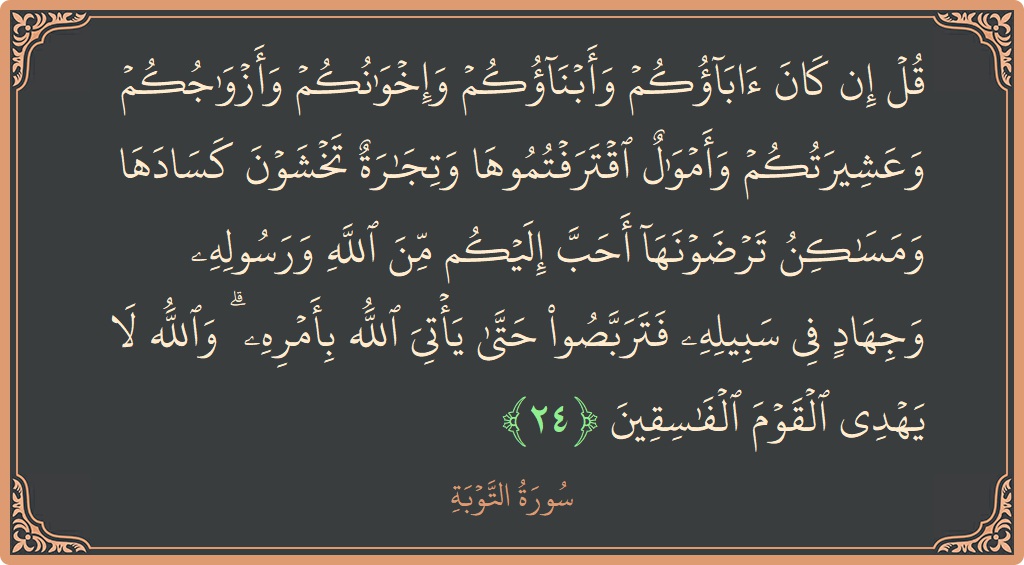 قُلۡ إِن كَانَ ءَابَآؤُكُمۡ وَأَبۡنَآؤُكُمۡ وَإِخۡوَٰنُكُمۡ وَأَزۡوَٰجُكُمۡ
وَعَشِيرَتُكُمۡ وَأَمۡوَٰلٌ ٱقۡتَرَفۡتُمُوهَا وَتِجَٰرَةٌ تَخۡشَوۡنَ كَسَادَهَا
وَمَسَٰكِنُ تَرۡضَوۡنَهَآ أَحَبَّ إِلَيۡكُم مِّنَ ٱللَّهِ وَرَسُولِهِۦ
وَجِهَادٍ فِي سَبِيلِهِۦ فَتَرَبَّصُواْ حَتَّىٰ يَأۡتِيَ ٱللَّهُ بِأَمۡرِهِۦۗ وَٱللَّهُ لَا
يَهۡدِي ٱلۡقَوۡمَ ٱلۡفَٰسِقِينَ ﴿٢٤﴾
سُورَةُ التَّوۡبَةِ